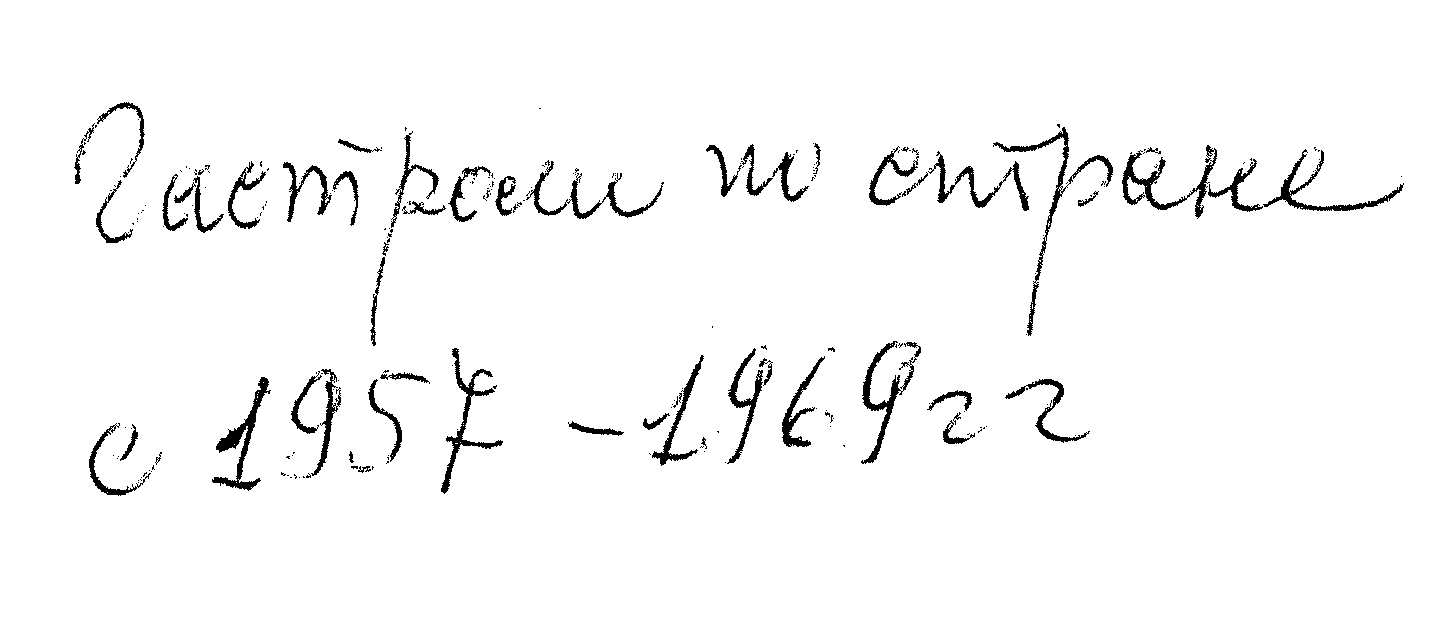 Гастроли по стране
с 1957 - 1969 гг